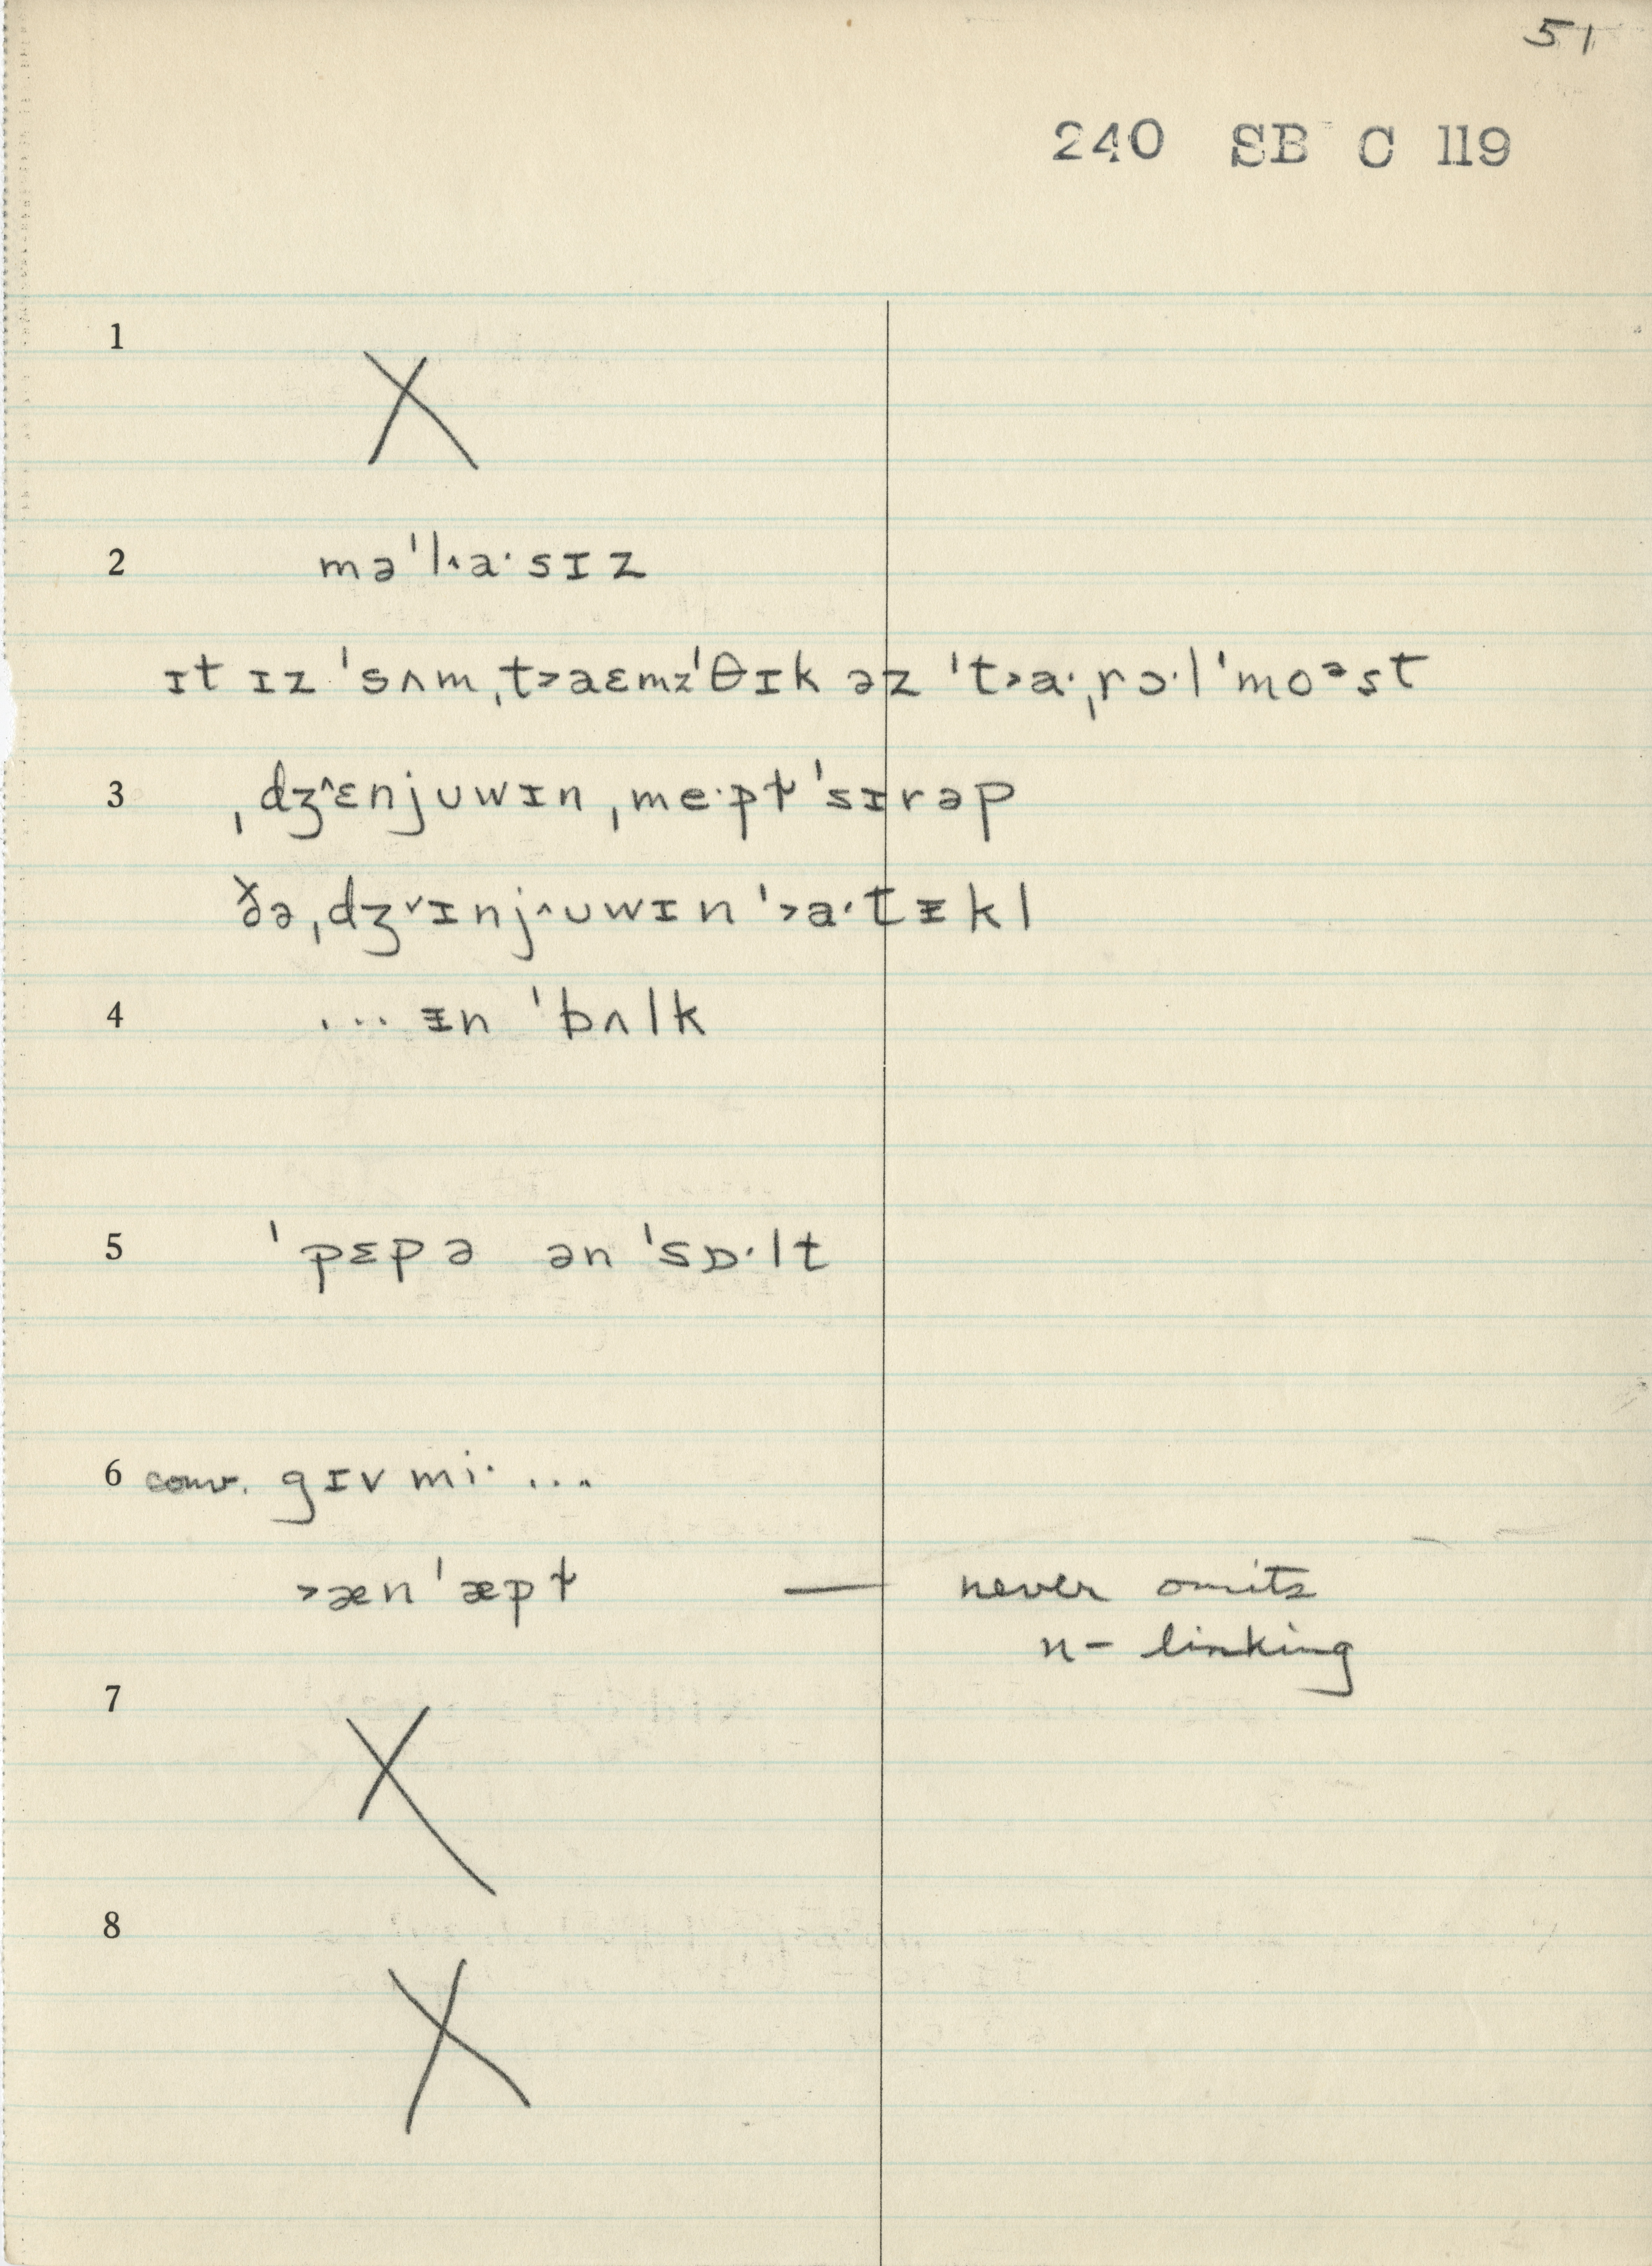 51
240 SB C 119
1
X
2 mə'l˄a·sɪz
ɪt ɪz 'sʌm ˌt˃aɛmz 'θɪk əz 't˃a·ˌrɔ·l'moᵊst
3 ˌdʒ˄ɛnjuwɪn ˌme·pɫ 'sɪrəp
ðə ˌdʒ˅ɪnj˄uwɪn '˃a·t̬ᵻkl
4 ... ᵻn 'bʌlk
5 'pɛpə ən 'sɒ·lt
6 conv. gɪv mi· ...
˃æn 'æpɫ — never omits
n- linking
7
X
8
X